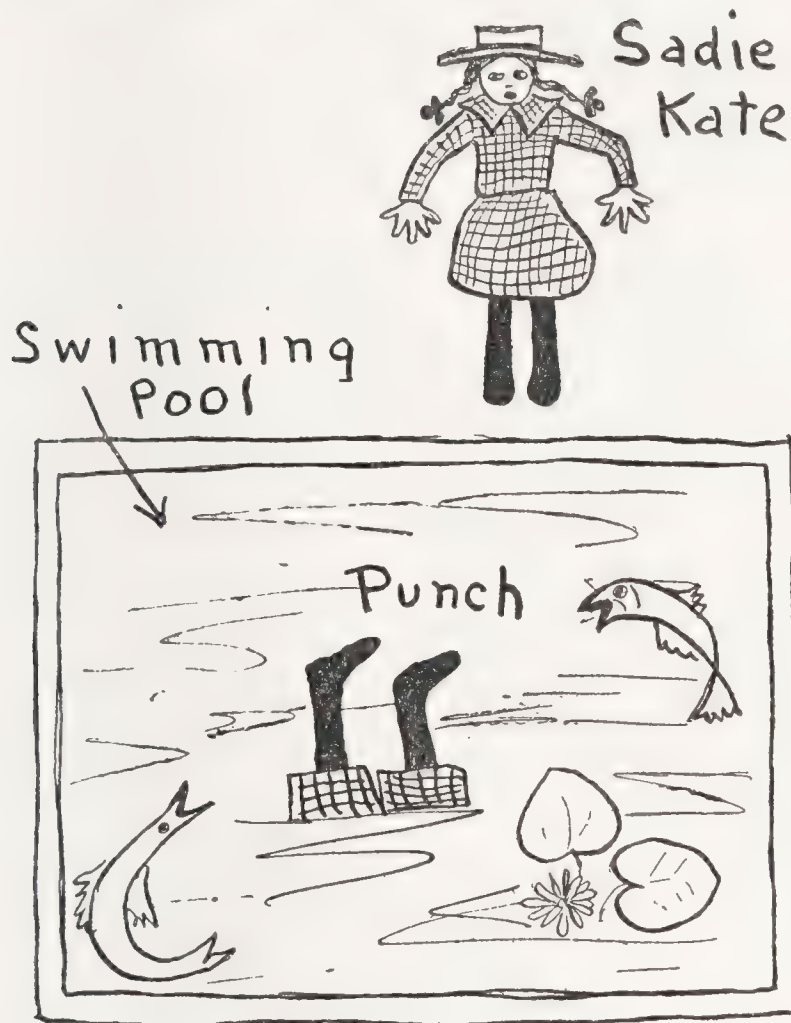 Sadie
Kate
Swimming
Pool
Punch